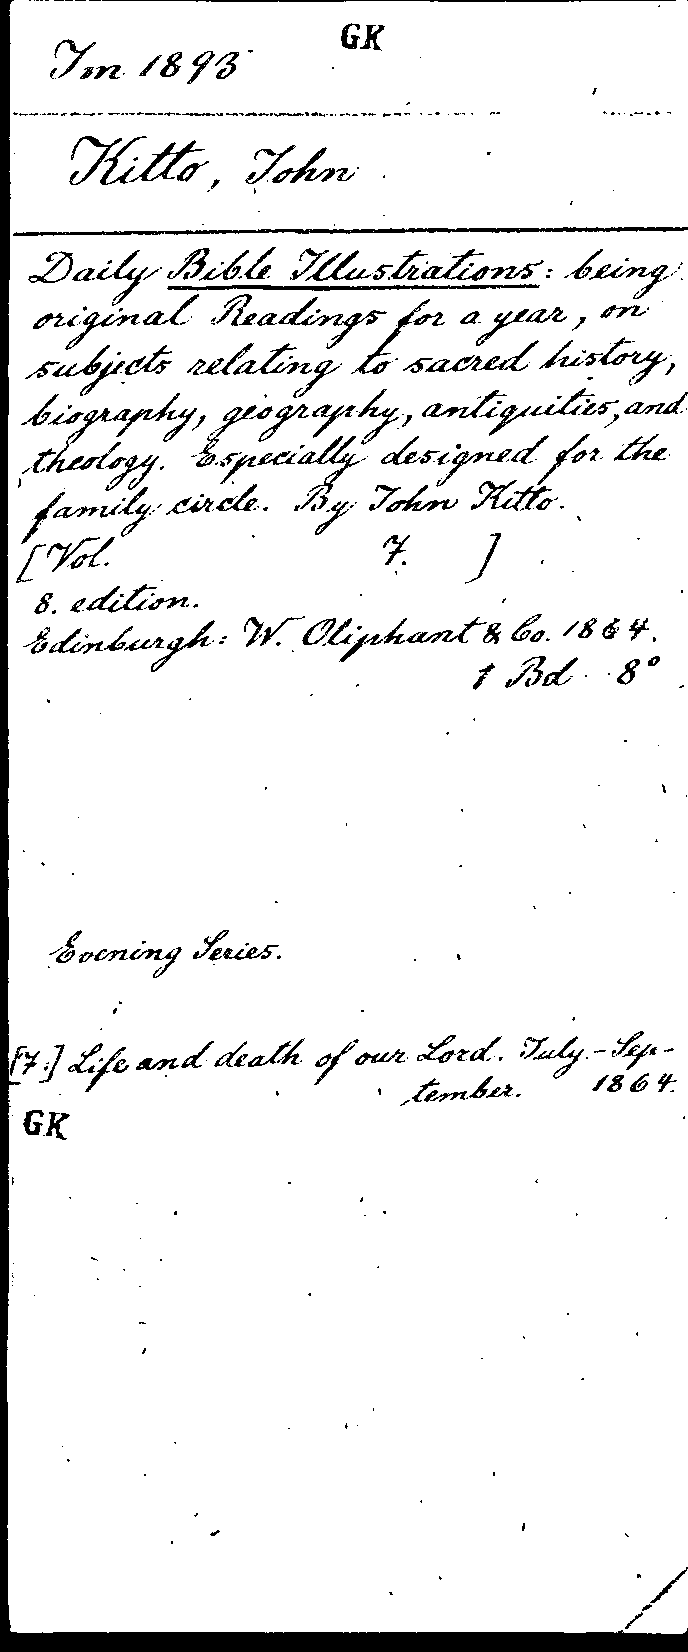 GK
Im 1893
Kitto, John
Daily Bible Illustrations: being
original Readings for a year, on
subjects relating to sacred history,
biography, geography, antiquities, and
theology. Especially designed for the
family circle. By John Kitto.
[Vol. 7. ]
8. edition.
Edinburgh: W. Oliphant & Co. 1864.
1 Bd 8°
Evening Series.
[7.] Life and death of our Lord. July - Sep-
tember. 1864.
GK